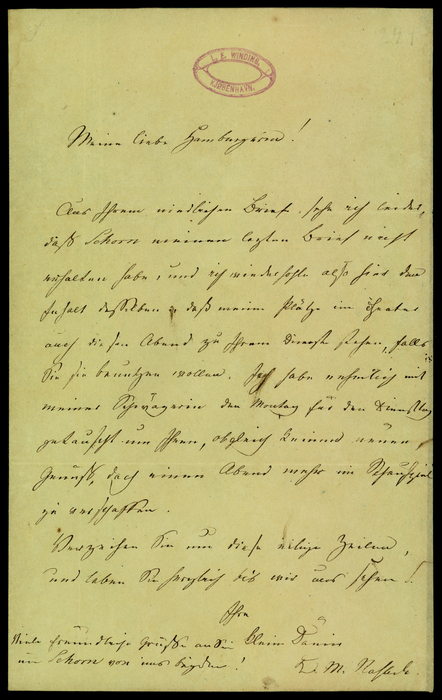 L. E. WINDING.
KJØBENHAVN.
Meine liebe Hamburgerin!
Aus Ihrem niedlichen Brief, sehe ich leider,
daß Schorn meinen letzten Brief nicht
erhalten habe, und ich wiederhole also hier den
Inhalt desselben, daß meine Plätze im Theater
auch diesen Abend zu Ihrem Dienst stehen, falls
Sie sie benutzen wollen. Ich habe nehmlich mit
meiner Schwägerin den Montag für den Dienstag
getauscht um Ihnen, obgleich keinen neuen
Genuß, doch einen Abend mehr im Schauspiel
zu verschaffen.
Verzeihen Sie um diese eilige Zeilen,
und leben Sie herzlich bis wir uns sehen!
Ihre
klein Dänin
Viele freundliche Grüsse an Sie
und Schorn von uns beyden!